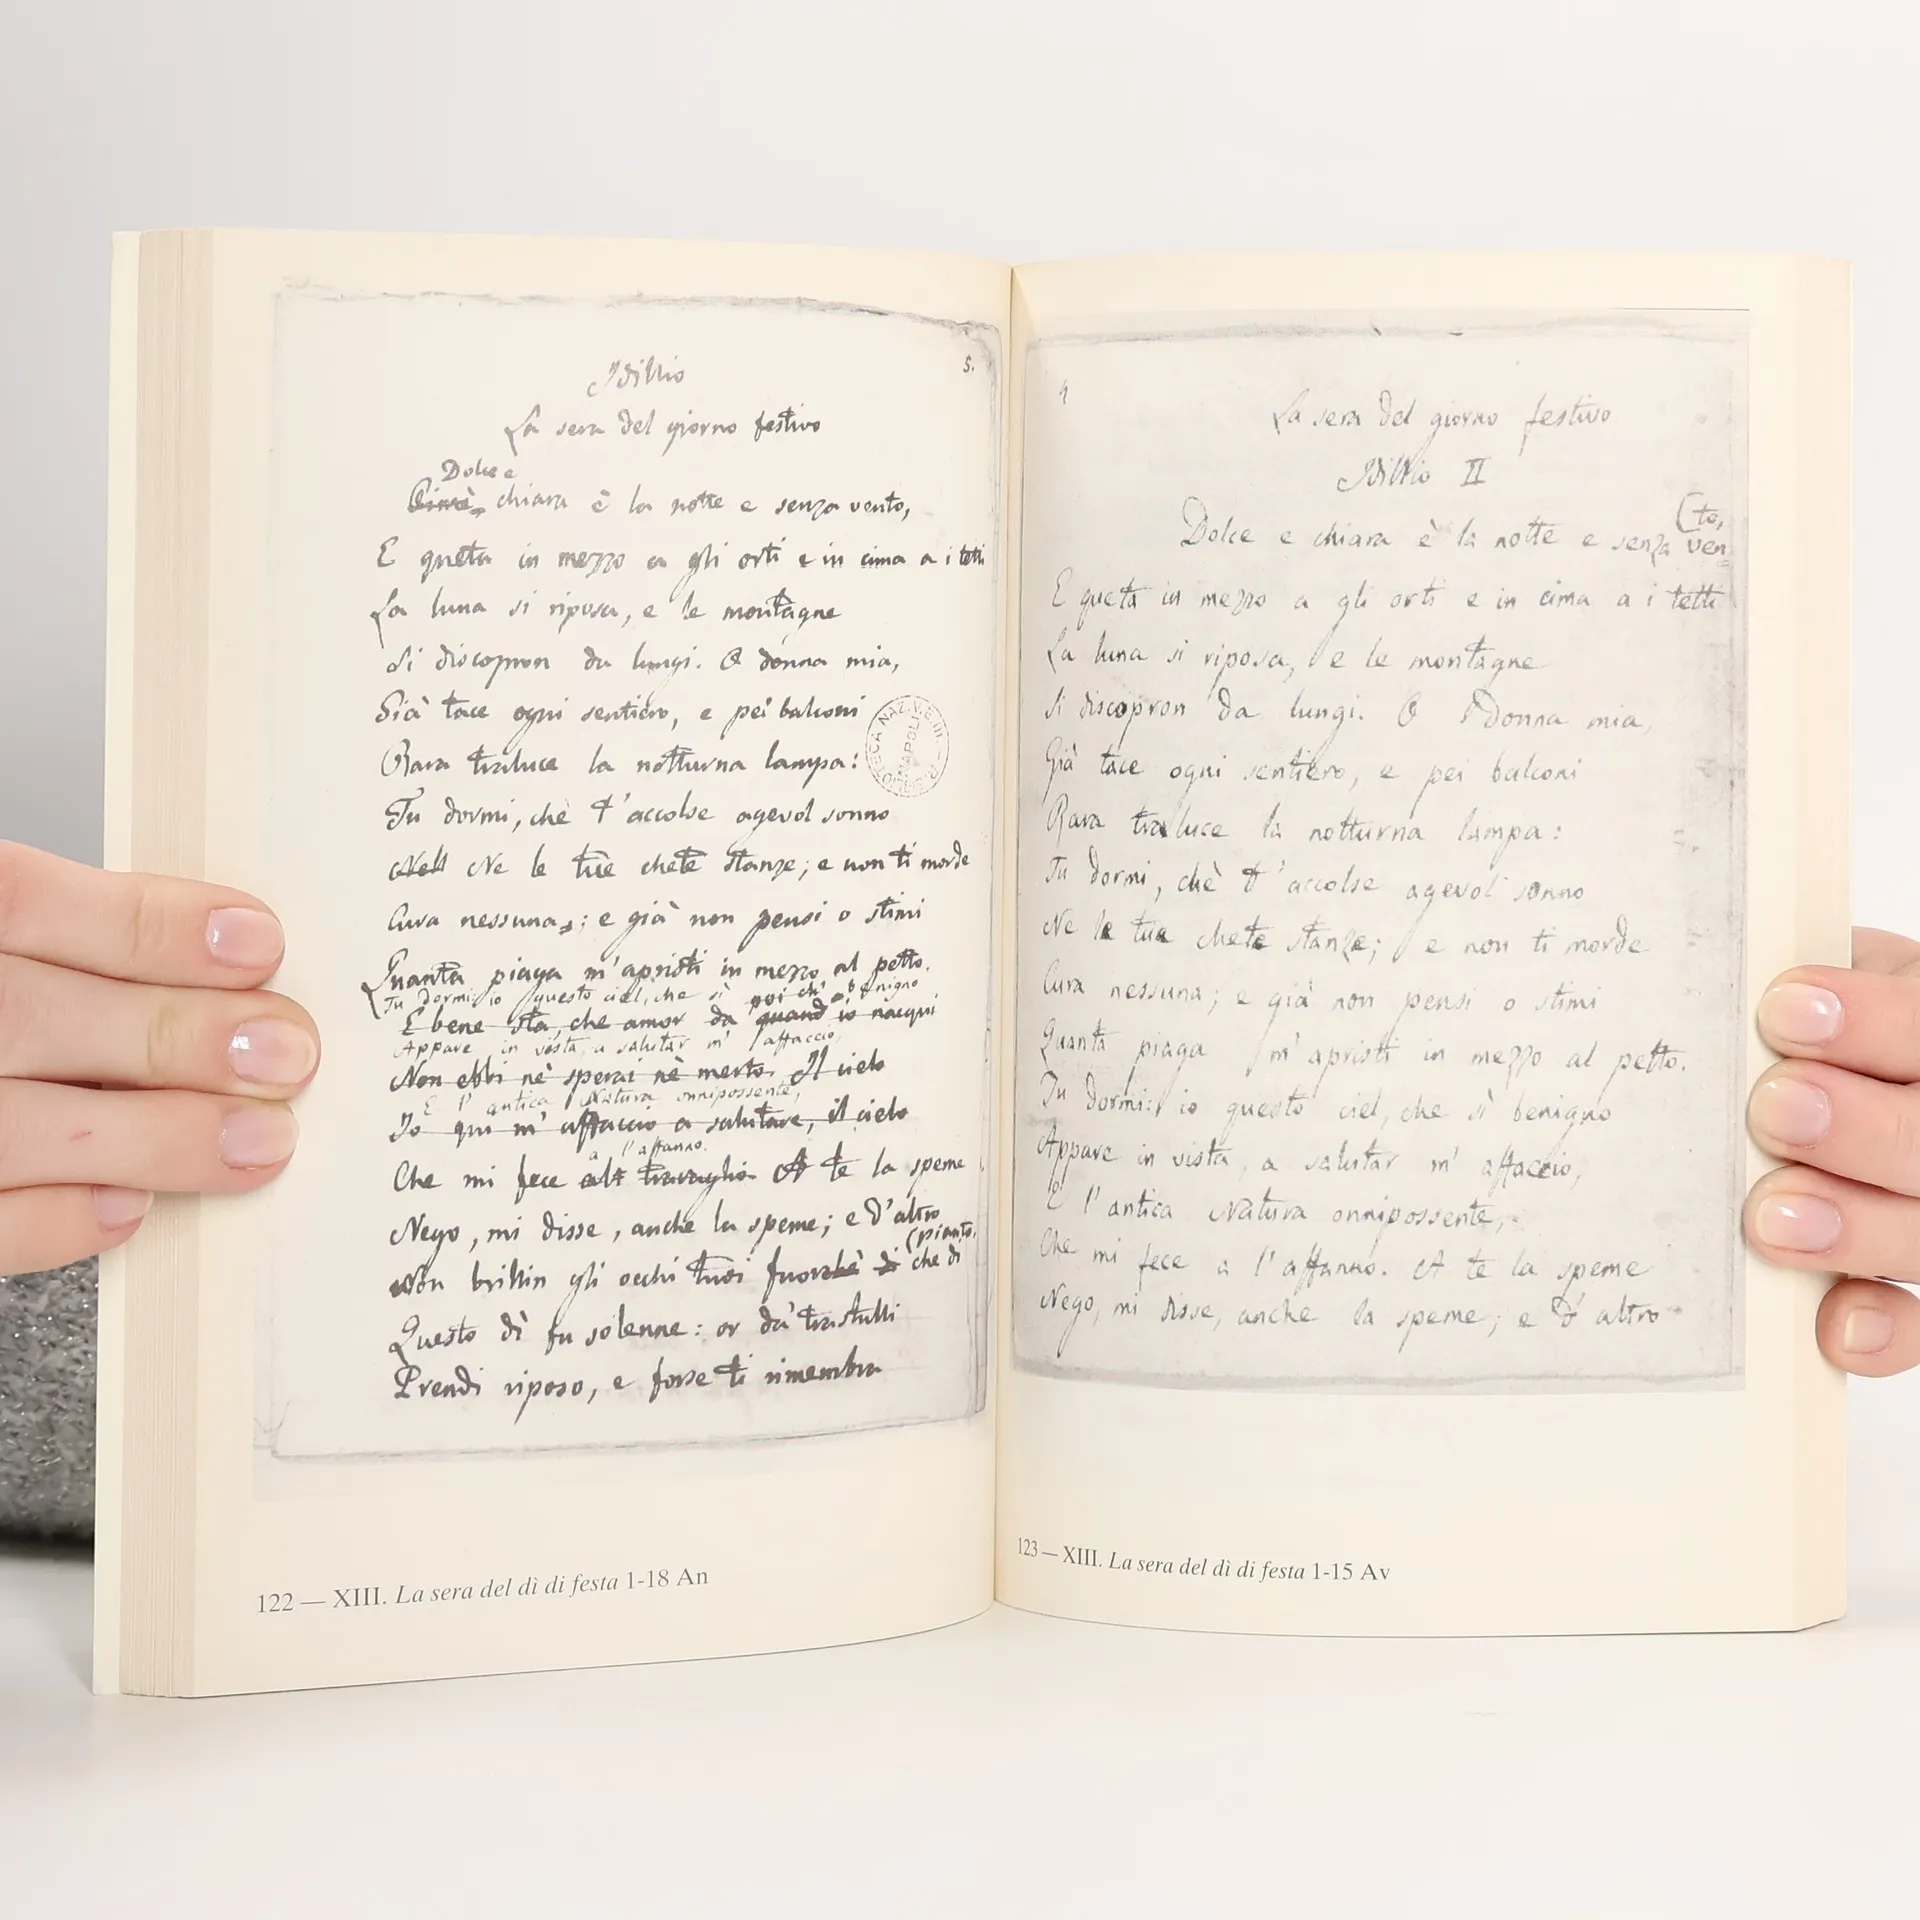 Idillio
5.
La sera del giorno festivo
Dolce e
Oimè, chiara è la notte e senza vento,
E queta in mezzo a gli orti e in cima a i tetti
La luna si riposa, e le montagne
Si discopron da lungi. O donna mia,
Già tace ogni sentiero, e pei balconi
Rara traluce la notturna lampa:
Tu dormi, chè t'accolse agevol sonno
Nell Ne le tue chete stanze; e non ti morde
Cura nessuna,; e già non pensi o stimi
Quanta piaga m'apristi in mezzo al petto.
Tu dormi: io questo ciel, che sì benigno
poi ch'
E bene sta, che amor da quand io nacqui
Appare in vista, a salutar m' affaccio,
Non ebbi nè sperai nè merto. Il cielo
E l' antica Natura onnipossente,
Io qui m' affaccio a salutare, il cielo
a l'affanno.
Che mi fece travaglio. A te la speme
Nego, mi disse, anche la speme; e d'altro
(pianto.
Non brillin gli occhi tuoi di che di
Questo dì fu solenne: or da' trastulli
Prendi riposo, e forse ti rimembra
122 — XIII. La sera del dì di festa 1-18 An
4
La sera del giorno festivo
Idillio II
(to,
Dolce e chiara è la notte e senza ven=
E queta in mezzo a gli orti e in cima a i tetti
La luna si riposa, e le montagne
Si discopron da lungi. O donna mia,
Già tace ogni sentiero, e pei balconi
Rara traluce la notturna lampa:
Tu dormi, chè t'accolse agevol sonno
Ne le tue chete stanze; e non ti morde
Cura nessuna; e già non pensi o stimi
Quanta piaga m'apristi in mezzo al petto.
Tu dormi: io questo ciel, che sì benigno
Appare in vista, a salutar m' affaccio,
E l'antica Natura onnipossente,
Che mi fece a l'affanno. A te la speme
Nego, mi disse, anche la speme; e d' altro
123 — XIII. La sera del dì di festa 1-15 Av